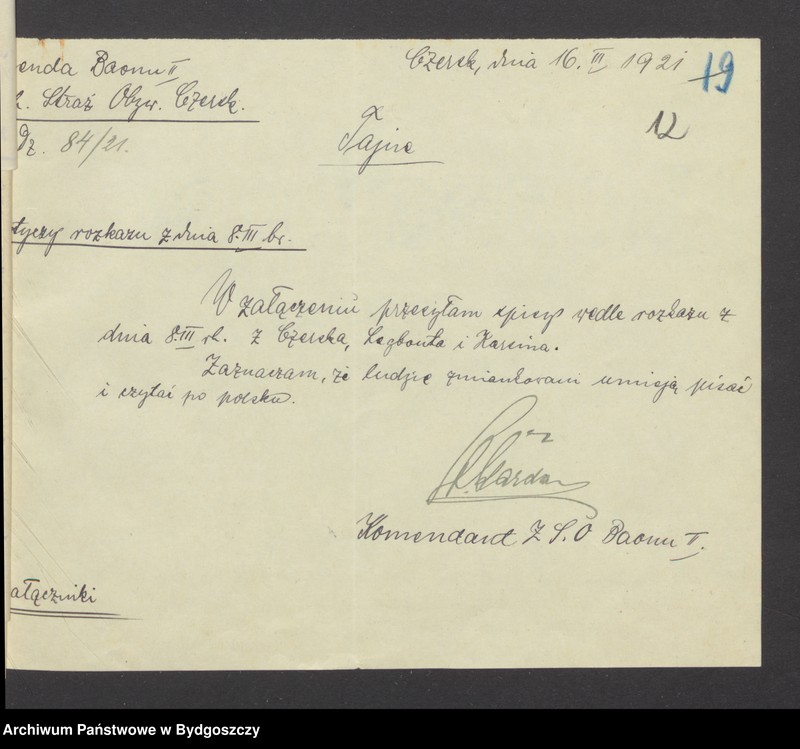 enda Baonu II
Czersk, dnia 16. III 1921
19
. Straż Obyw. Czersk.
12
Dz. 84/21.
Tajne
tyczy rozkazu z dnia 8. III br.
W załączeniu przesyłam spisy wedle rozkazu z
dnia 8. III rb. z Czerska, Łęgbonta i Karsina.
Zaznaczam, że ludzie zmiankowani umieją pisać
i czytać po polsku.
Komendant Z S. O Baonu II.
ałączniki
Archiwum Państwowe w Bydgoszczy